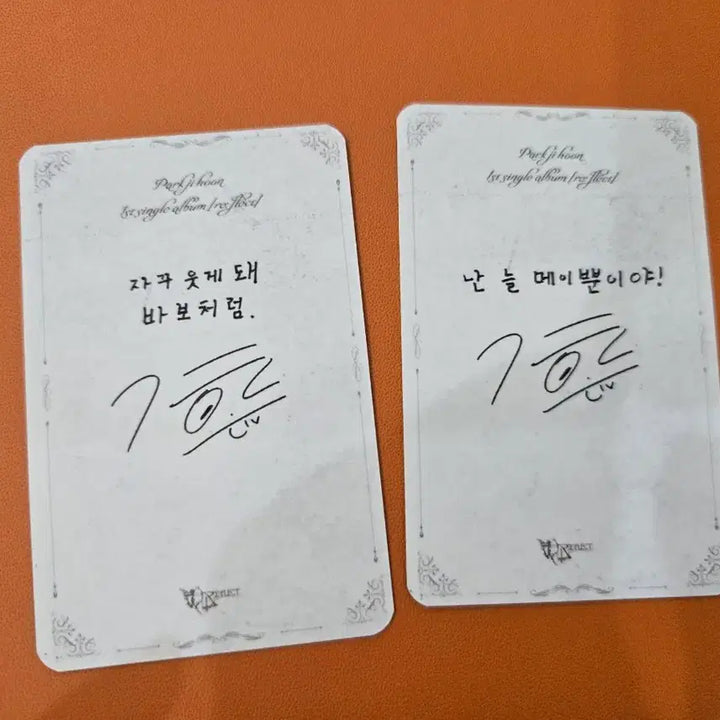 Park ji hoon
1st single album [re:flect]
자꾸 웃게 돼
바보처럼.
Park ji hoon
1st single album [re:flect]
난 늘 메이뿐이야!